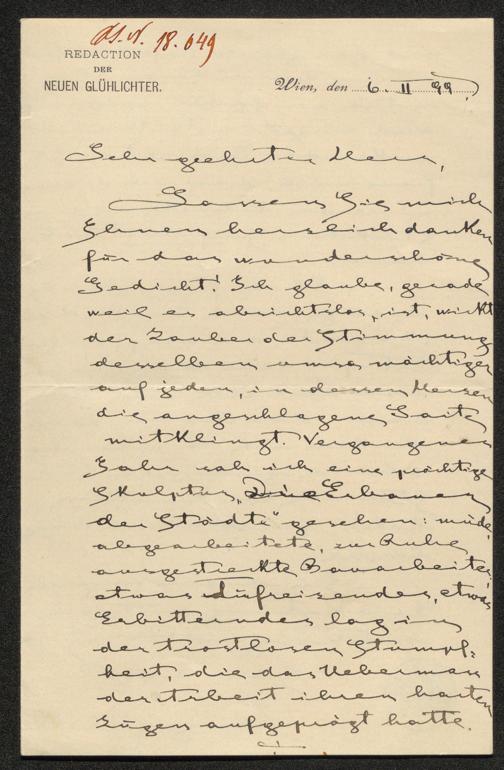 J.N. 18.649
REDACTION
DER
NEUEN GLÜHLICHTER.
Wien, den 6. II 99.
Sehr geehrter Herr,
Lassen Sie mich
Ihnen herzlich danken
für das wunderschöne
Gedicht! Ich glaube, gerade
weil es absichtslos ist, wirkt
der Zauber der Stimmung
desselben umso mächtiger
auf jeden, in dessen Herzen
die angeschlagene Saite
mitklingt. Vergangenes
Jahr sah ich eine prächtige
Skulptur, "Die Erbauer
der Städte" gesehen: müde,
abgearbeitete, zur Ruhe
ausgestreckte Bauarbeiter,
etwas Aufreizendes, etwas
Erbitterndes lag in
der trostlosen Stumpf-
heit, die das Uebermass
der Arbeit ihren harten
Zügen aufgeprägt hatte.